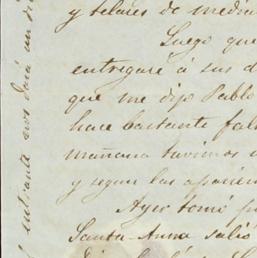 y telares de media
Luego que
entregaré á sus d
que me dijo Pablo
hace bastante fal
mañana tuvimos
y segun las aparien
Ayer tomé p
Santa-Anna salió
entrante nos dará un di